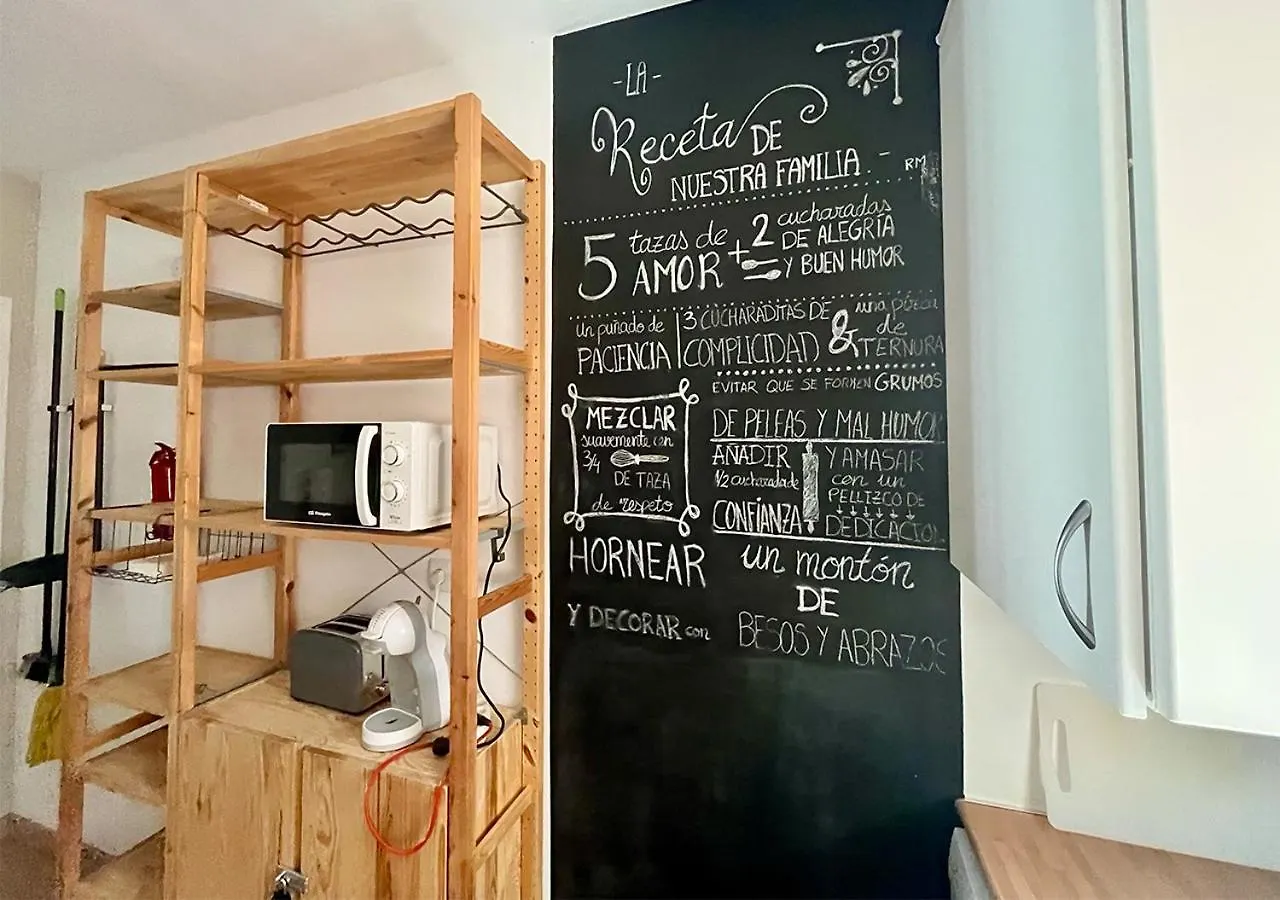 -LA-
Receta DE
NUESTRA FAMILIA - RM
5 tazas de AMOR
+2 cucharadas DE ALEGRÍA Y BUEN HUMOR
un puñado de PACIENCIA
3 CUCHARADITAS DE COMPLICIDAD
& una pizca de TERNURA
EVITAR QUE SE FORMEN GRUMOS
DE PELEAS Y MAL HUMOR
MEZCLAR
suavemente con
3/4
DE TAZA
de respeto
AÑADIR
1/2 cucharada de
CONFIANZA
Y AMASAR
con un
PELLIZCO DE
DEDICACION
HORNEAR
un montón
DE
Y DECORAR con
BESOS Y ABRAZOS